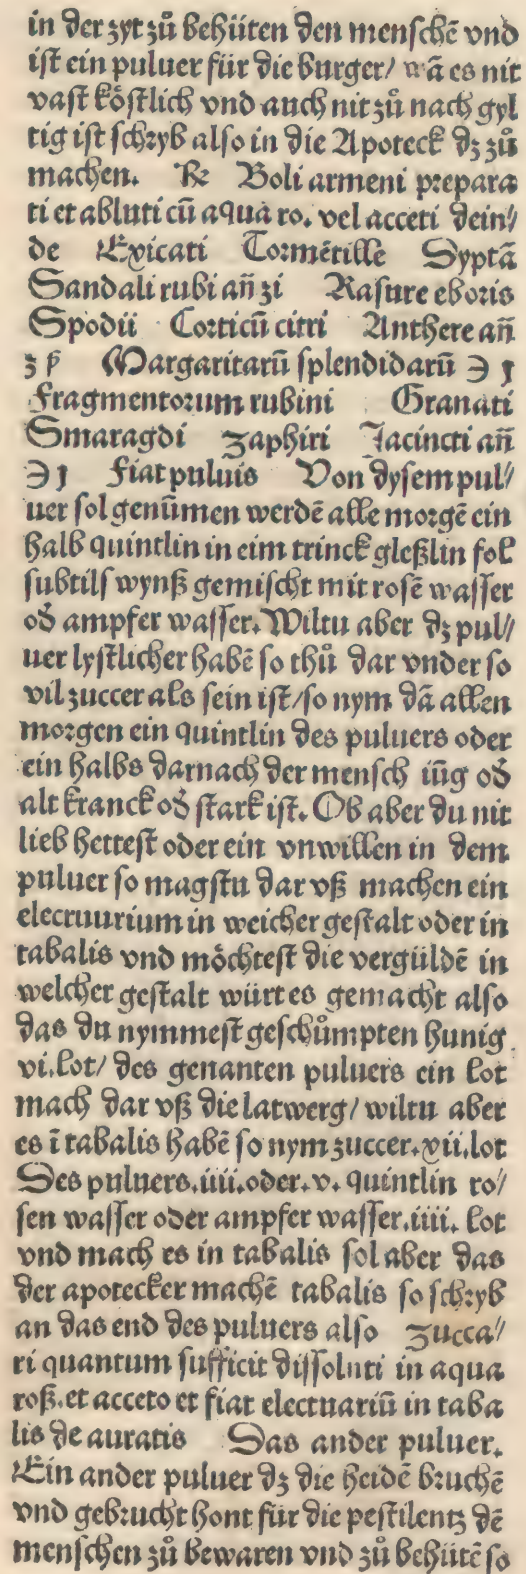 in der zyt zů behüten den menschē vnd
ist ein puluer für die burger/ wā es nit
vast köstlich vnd auch nit zů nach gyl
tig ist schryb also in die Apoteck dz zů
machen. ℞ Boli armeni prepara
ti et abluti cū aqua ro. vel acceti dein⸗
de Exicati Tormētille Syptā
Sandali rubi añ ʒi Rasure eboris
Spodii Corticū citri Anthere añ
ʒ ß Margaritarū splendidarū ℈ j
fragmentorum rubini Granati
Smaragdi zaphiri Jacincti añ
℈ j Fiat puluis Von dysem pul⸗
uer sol genūmen werdē alle morgē ein
halb quintlin in eim trinck gleßlin fol
subtils wynß gemischt mit rosē wasser
od̄ ampfer wasser. Wiltu aber dz pul⸗
uer lystlicher habē so thů dar vnder so
vil zuccer als sein ist/ so nym dā allen
morgen ein quintlin des puluers oder
ein halbs darnach der mensch iūg od̄
alt kranck od̄ stark ist. Ob aber du nit
lieb hettest oder ein vnwillen in dem
puluer so magstu dar vß machen ein
electuurium in weicher gestalt oder in
tabalis vnd möchtest die vergüldē in
welcher gestalt würt es gemacht also
das du nymmest geschůmpten hunig
vi. lot/ des genanten puluers ein lot
mach dar vß die latwerg/ wiltu aber
es ī tabalis habē so nym zuccer. xii. lot
Des puluers. iiii. oder. v. quintlin ro⸗
sen wasser oder ampfer wasser. iiii. lot
vnd mach es in tabalis sol aber das
der apotecker machē tabalis so schryb
an das end des puluers also zucca⸗
ri quantum sufficit dissoluti in aqua
roß. et acceto et fiat electuariū in taba
lis de auratis Das ander puluer.
Ein ander puluer dz die heidē bruchē
vnd gebrucht hont für die pestilentz dē
menschen zů bewaren vnd zů behütē so